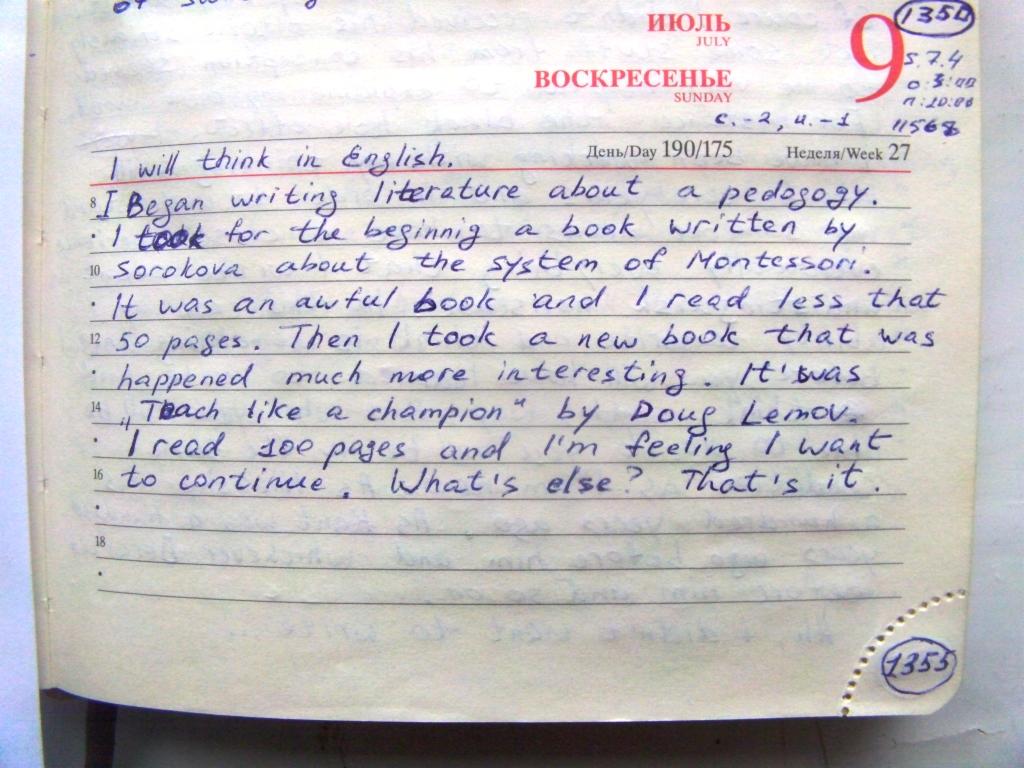 ИЮЛЬ
JULY
9
1354
ВОСКРЕСЕНЬЕ
SUNDAY
5.7.4
с.-2, и.-1
11568
I will think in English.
День/Day 190/175
Неделя/Week 27
8 I Began writing literature about a pedogogy.
I took for the beginnig a book written by
10 Sorokova about the system of Montessori.
It was an awful book and I read less that
12 50 pages. Then I took a new book that was
happened much more interesting. It's was
14 „Teach like a champion“ by Doug Lemov.
I read 100 pages and I'm feeling I want
16 to continue. What's else? That's it.
18
1355